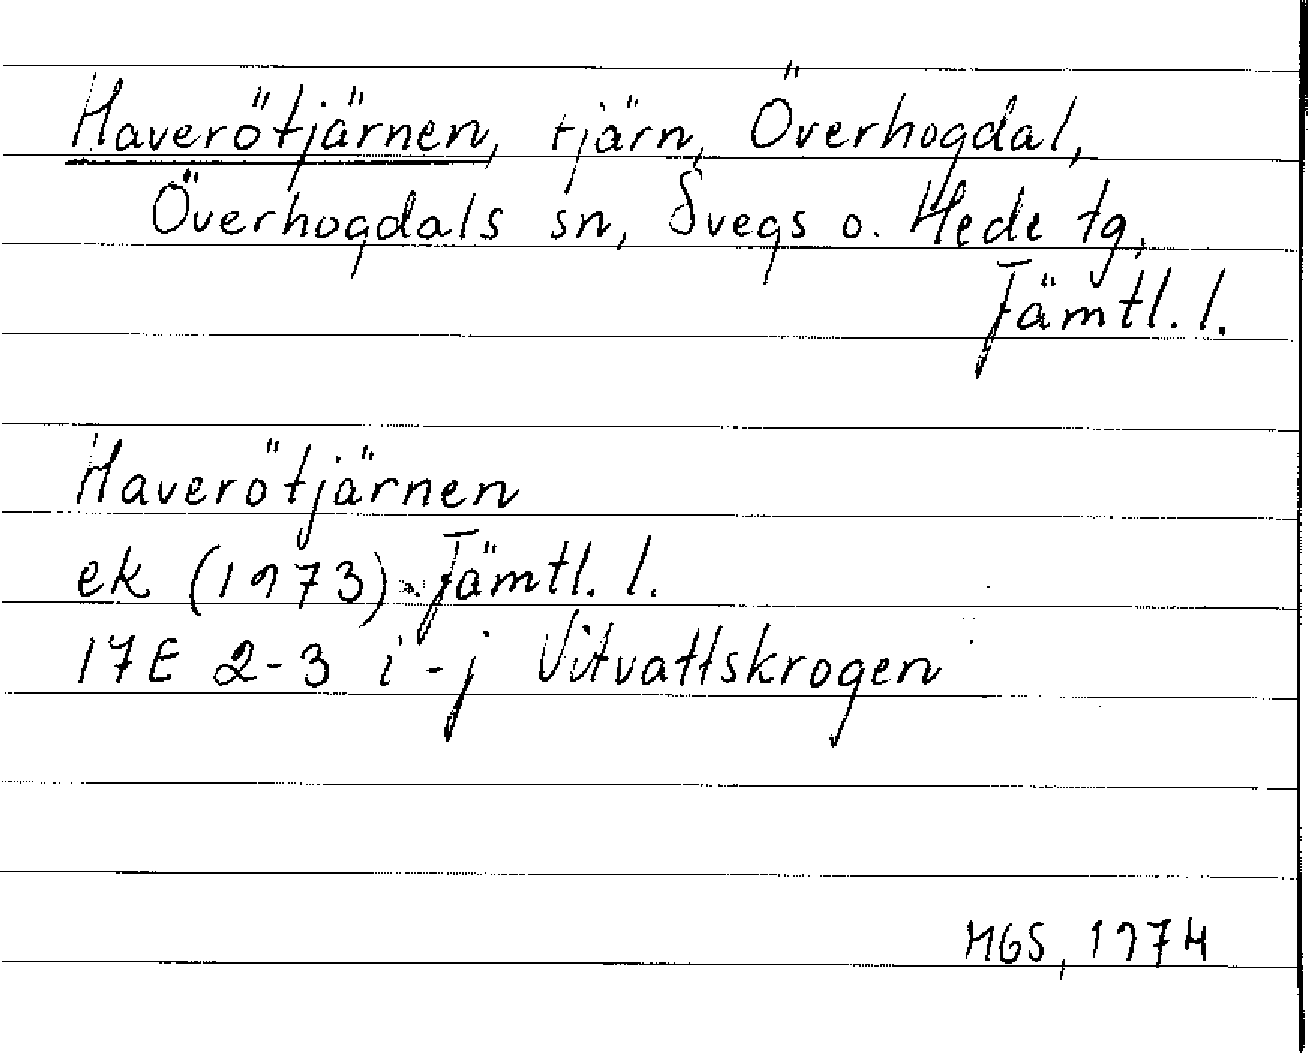 Haverötjärnen, tjärn, Överhogdal,
Överhogdals sn, Svegs o. Hede tg,
Jämtl. l.
Haverötjärnen
ek (1973) Jämtl. l.
17E 2-3 i-j Vitvattskrogen
MGS, 1974